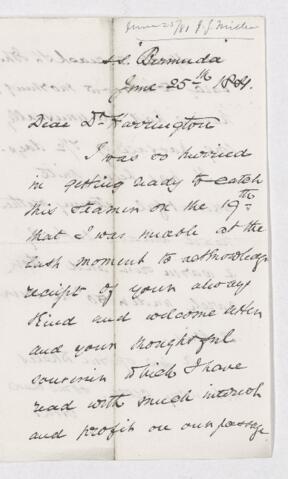 June 25/81 J.S.
S.S. "Bermuda"
June 25th 1881.
Dear Dr. Farrington
I was so hurried
in getting ready to catch
this steamer on the 19th
that I was unable at the
last moment to acknowledge
receipt of your always
kind and welcome letter
and your thoughtful
souvenir which I have
read with much interest
and profit on our passage